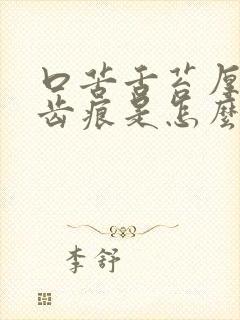 口苦舌苔厚
齿痕是怎麼
李舒